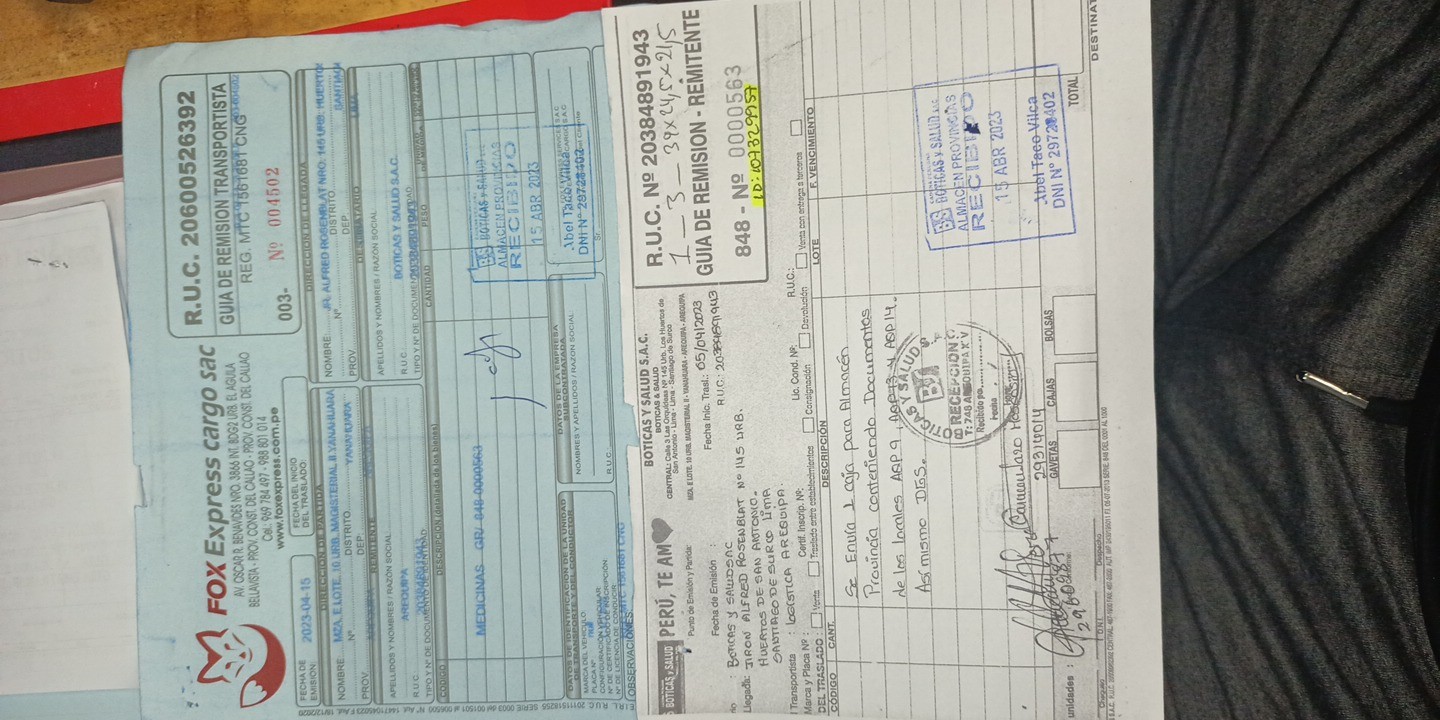 FOX Express cargo sac
AV. OSCAR R. BENAVIDES NRO. 3866 INT. BDG2 URB. EL AGUILA
BELLAVISTA - PROV. CONST. DEL CALLAO - PROV. CONST. DEL CALLAO
Cel.: 969 784 497 - 988 801 014
www.foxexpress.com.pe
R.U.C. 20600526392
GUIA DE REMISION TRANSPORTISTA
REG. MTC 1561681 CNG
003- Nº 004502
FECHA DE EMISIÓN: 2023-04-15
FECHA DEL INICIO DEL TRASLADO:
DIRECCIÓN DE PARTIDA
NOMBRE: MZA. E LOTE. 10 URB. MAGISTERIAL II YANAHUARA
Nº DISTRITO. YANAHUARA
PROV. DEP.
REMITENTE
APELLIDOS Y NOMBRES / RAZÓN SOCIAL
AREQUIPA
R.U.C. 20384891943
DIRECCIÓN DE LLEGADA
NOMBRE: JR. ALFRED ROSENBLAT NRO. 145 URB. HUERTOS
Nº DISTRITO.
PROV. DEP. LIMA
APELLIDOS Y NOMBRES / RAZÓN SOCIAL
BOTICAS Y SALUD S.A.C.
R.U.C. 20384891943
CÓDIGO DESCRIPCIÓN (detallada de los bienes) CANTIDAD PESO
MEDICINAS GR/ 848-0000563
BOTICAS Y SALUD
ALMACEN PROVINCIAS
RECIBIDO
15 ABR 2023
Abel Taco Vilca
DNI N° 29728402
DATOS DE IDENTIFICACIÓN DE LA UNIDAD DE TRANSPORTE Y DEL CONDUCTOR
MARCA DEL VEHÍCULO
PLACA Nº
CONFIGURACIÓN VEHICULAR
Nº DE LICENCIA DE CONDUCIR
DATOS DE LA EMPRESA SUBCONTRATADA
NOMBRES Y APELLIDOS / RAZÓN SOCIAL
R.U.C.:
OBSERVACIONES
BOTICAS Y SALUD PERÚ, TE AM
BOTICAS Y SALUD S.A.C.
BOTICAS & SALUD
CENTRAL: Calle 3 Las Orquídeas Nº 145 Urb. Los Huertos de
San Antonio - Lima - Lima - Santiago de Surco
Punto de Emisión y Partida: MZA. E LOTE. 10 URB. MAGISTERIAL II - YANAHUARA - AREQUIPA - AREQUIPA
R.U.C. Nº 20384891943
1 - 3 - 39x24,5x21,5
GUIA DE REMISION - REMITENTE
848 - Nº 0000563
ID: 107329957
Fecha de Emisión : Fecha Inic. Trasl.: 05/04/2023
BOTICAS Y SALUD SAC R.U.C.: 20384891943
Llegada: JIRON ALFRED ROSENBLAT Nº 145 URB.
HUERTOS DE SAN ANTONIO.
SANTIAGO DE SURCO LIMA
Transportista : LOGISTICA AREQUIPA. R.U.C.:
Marca y Placa Nº : Certif. Inscrip. Nº: Lic. Cond. Nº:
DEL TRASLADO : Venta Traslado entre establecimientos Consignación Devolución Venta con entrega a terceros
CÓDIGO CANT. DESCRIPCIÓN LOTE F. VENCIMIENTO
Se Envia 1 caja para Almacén
Provincia conteniendo Documentos
de los locales AQP 9, AQP13 y AQP14.
Asi mismo DIS.
BOTICAS Y SALUD
RECEPCION
T: 748 AREQUIPA XV
Recibido po
Fecha
BOTICAS Y SALUD S.A.C.
ALMACEN PROVINCIAS
RECIBIDO
15 ABR 2023
Abel Taco Vilca
DNI N° 29728402
29609877
29319014
unidades : GAVETAS CAJAS BOLSAS TOTAL
D.N.I. Despacho
DESTINAT